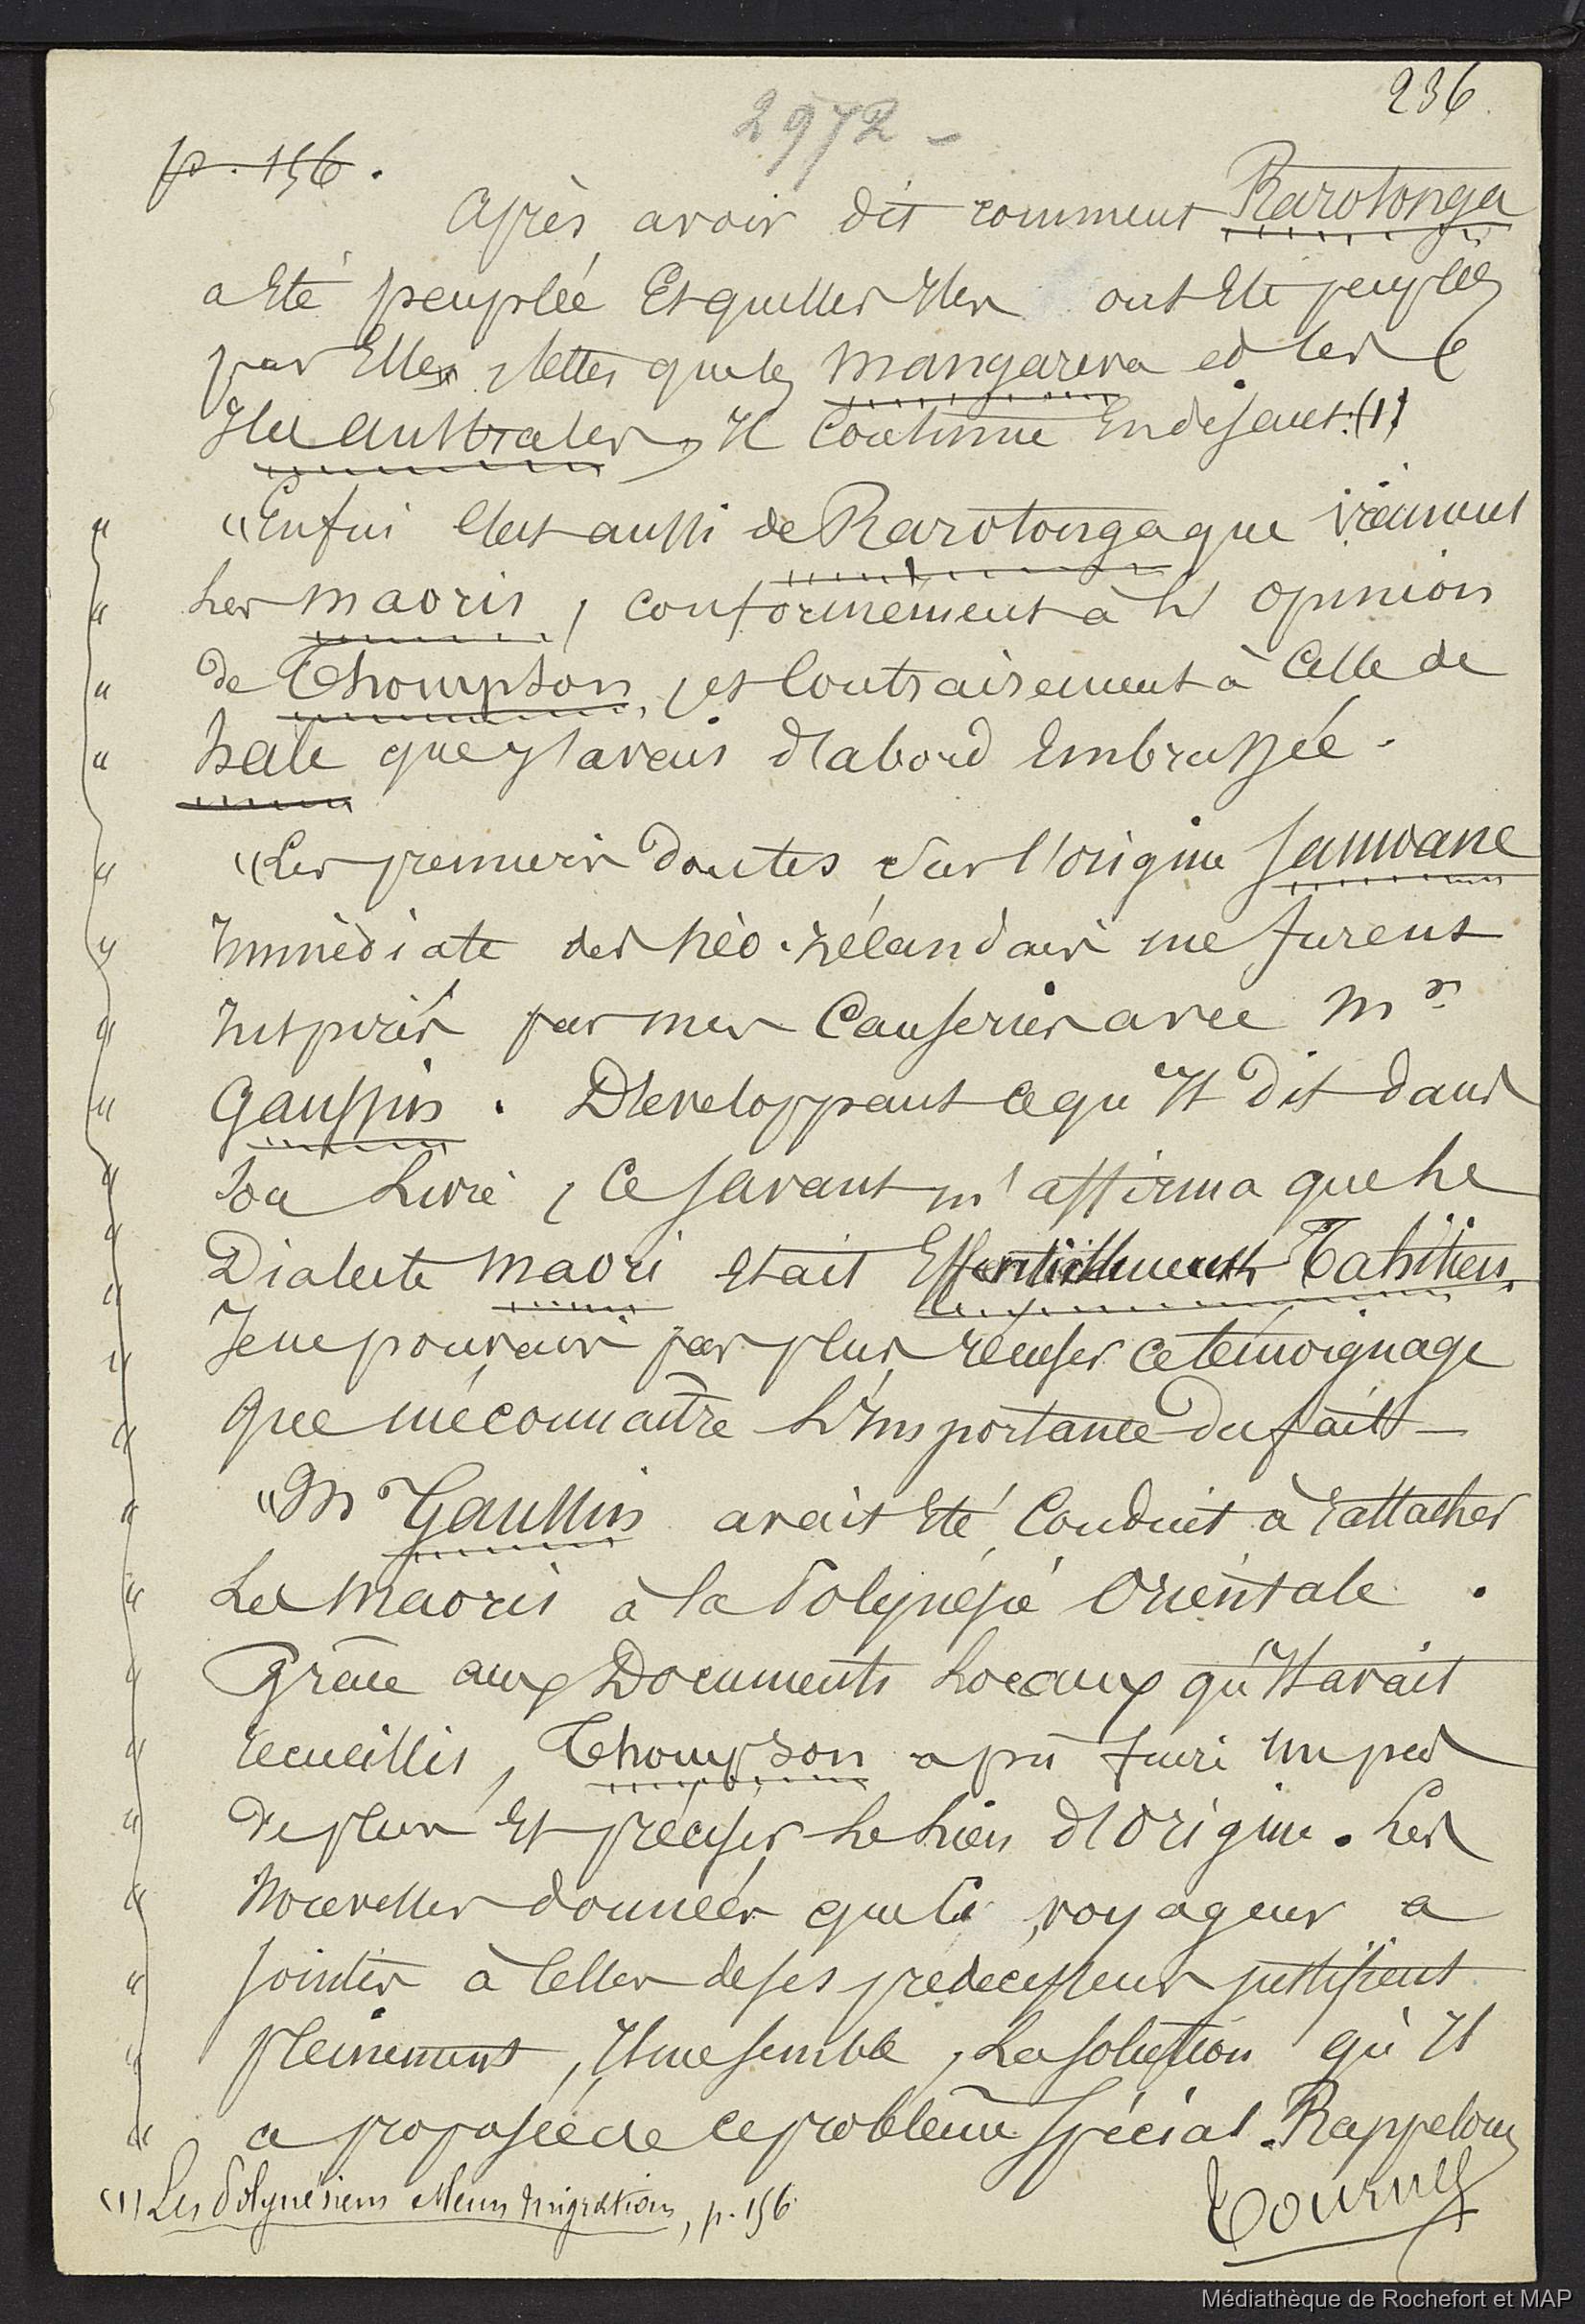 236
2972 -
p. 156.
Après avoir dit comment Rarotonga
a Eté peuplée Et quelles Iles ont Eté peuplées
par Elles, telles que les Mangareva et les
Iles Australes, Il Continue En disant: (1)
"Enfin c'est aussi de Rarotonga que viennent
" Les Maoris, conformément à L'opinion
" de Thompson, et Contrairement à Celle de
" Hale que j'avais d'abord Embrassée.
" "Les premiers Doutes Sur l'origine Samoane
" Immédiate des Néo-Zélandais me furent
" Inspirés par mes Causeries avec Mr
" Gaussin. Développant ce qu'Il dit dans
" Son Livre, Ce savant m'affirma que Le
" Dialecte Maori était Essentiellement Tahitien.
" Je ne pouvais pas plus récuser ce témoignage
" que méconnaître L'Importance du fait -
" "Mr Gaussin avait Eté Conduit à rattacher
" Les Maoris à la Polynésie Orientale.
" Grâce aux Documents Locaux qu'Il avait
" recueillis, Thompson a pû faire un pas
" de plus Et préciser Le Lieu d'Origine. Les
" Nouvelles données que ce voyageur a
" jointes à Celles de ses prédécesseurs justifient
" pleinement, Il me semble, La Solution qu'Il
" a proposée de ce problème Spécial. Rappelons
(1) Les Polynésiens et leurs migrations, p. 156
Tournez
Médiathèque de Rochefort et MAP